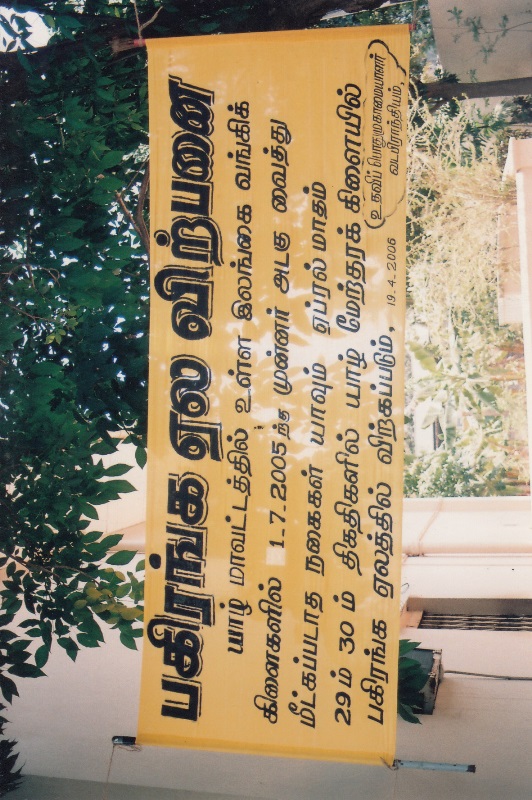 பகிரங்க ஏல விற்பனை
யாழ் மாவட்டத்தில் உள்ள இலங்கை வங்கிக்
கிளைகளில் 1.7.2005ந்த முன்னர் அடகு வைத்து
மீட்கப்படாத நகைகள் யாவும் ஏப்ரல் மாதம்
29ம் 30ம் திகதிகளில் யாழ் மேற்தரக் கிளையில்
பகிரங்க ஏலத்தில் விற்கப்படும்,
19.4.2006
உதவிப் பொது முகாமையாளர்
வடபிராந்தியம்,